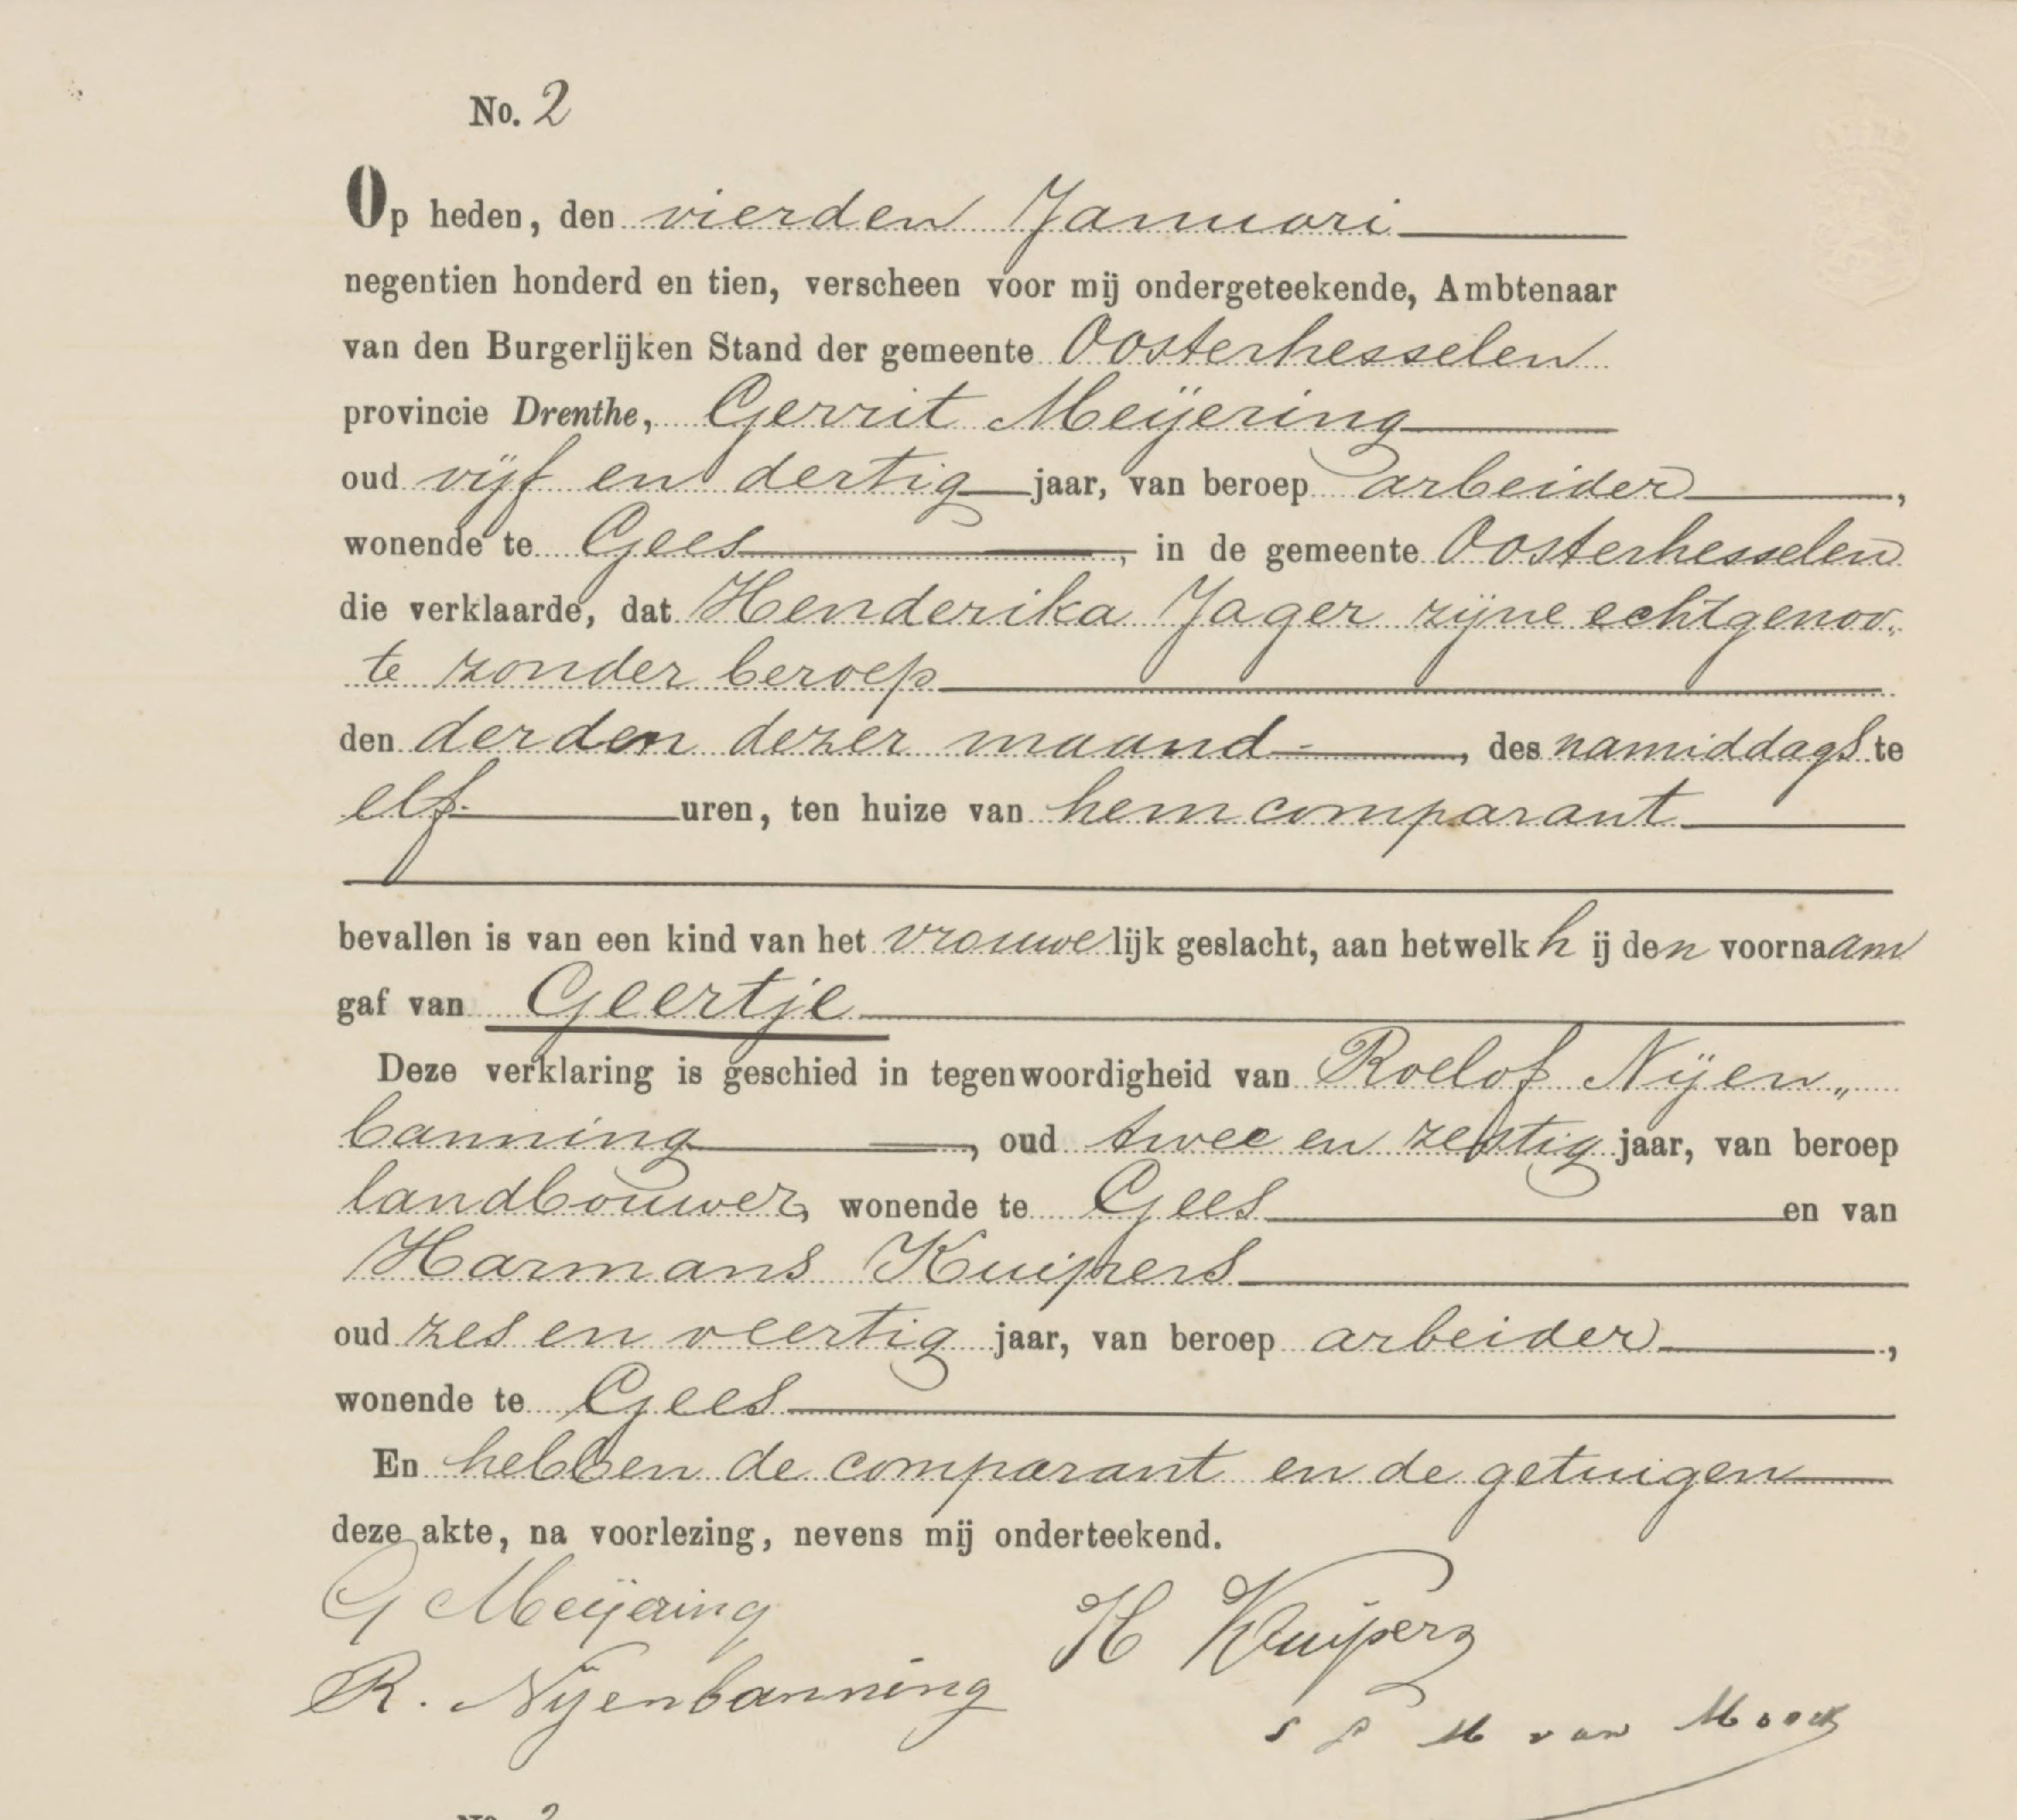 No. 2
Op heden, den vierden Januari
negentien honderd en tien, verscheen voor mij ondergeteekende, Ambtenaar
van den Burgerlijken Stand der gemeente Oosterhesselen
provincie Drenthe, Gerrit Meijering
oud vijf en dertig jaar, van beroep arbeider,
wonende te Gees, in de gemeente Oosterhesselen
die verklaarde, dat Henderika Jager zijne echtgenoo„
te zonder beroep
den derden dezer maand, des namiddags te
elf uren, ten huize van hem comparant
bevallen is van een kind van het vrouwelijk geslacht, aan hetwelk hij den voornaam
gaf van Geertje
Deze verklaring is geschied in tegenwoordigheid van Roelof Nijen„
banning, oud twee en zestig jaar, van beroep
landbouwer, wonende te Gees en van
Harmans Kuipers
oud zes en veertig jaar, van beroep arbeider,
wonende te Gees
En hebben de comparant en de getuigen
deze akte, na voorlezing, nevens mij onderteekend.
G Meijering
H Kuipers
R. Nijenbanning
M van